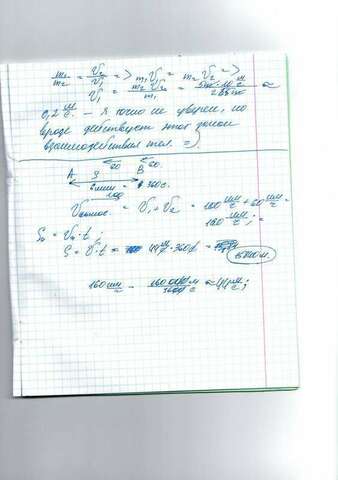 m₁/m₂ = V₂/V₁ => m₁V₁ = m₂V₂ =>
V₁ = m₂V₂/m₁ = ≈
0,2 м/с. — Я точно не уверен, но
вроде действует этот закон
взаимодействия тел. =)
60 60
A S B
6 мин = 360 с.
100
V = V₁ + V₂ = 100 км/ч + 60 км/ч =
160 км/ч;
S = V · t;
S = V · t = 44 м/с · 360 с =
160 км/ч = 160000 м/3600 с ≈ 44 м/с;